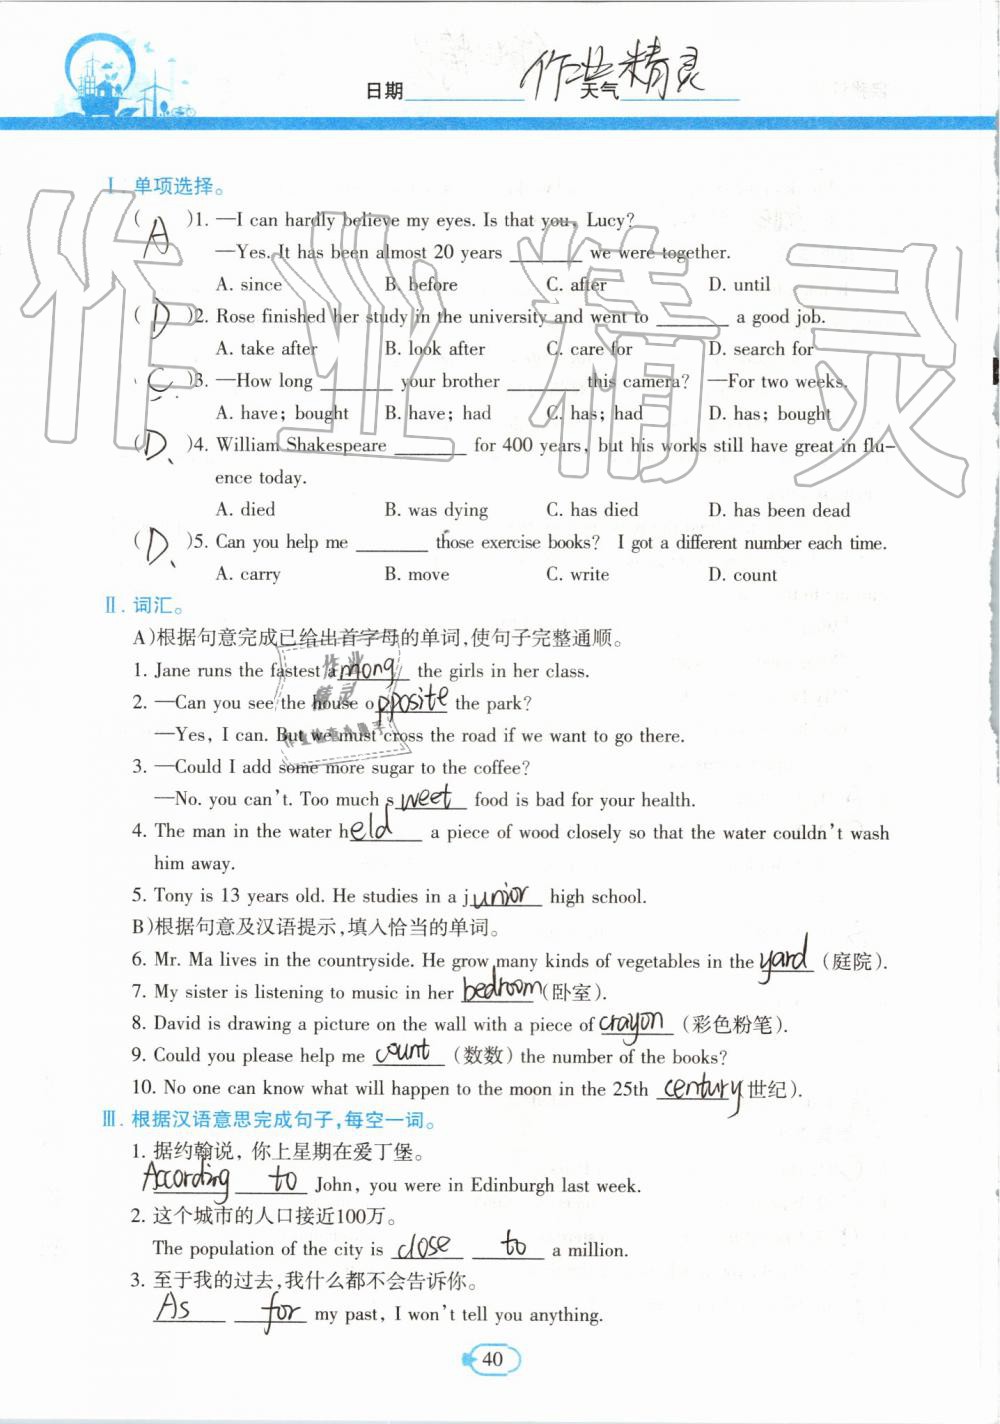 日期 天气
作业精灵
Ⅰ 单项选择。
( A )1. —I can hardly believe my eyes. Is that you, Lucy?
—Yes. It has been almost 20 years ________ we were together.
A. since B. before C. after D. until
( D )2. Rose finished her study in the university and went to ________ a good job.
A. take after B. look after C. care for D. search for
( C )3. —How long ________ your brother ________ this camera? —For two weeks.
A. have; bought B. have; had C. has; had D. has; bought
( D )4. William Shakespeare ________ for 400 years, but his works still have great in flu-
ence today.
A. died B. was dying C. has died D. has been dead
( D )5. Can you help me ________ those exercise books? I got a different number each time.
A. carry B. move C. write D. count
Ⅱ. 词汇。
A)根据句意完成已给出首字母的单词,使句子完整通顺。
1. Jane runs the fastest among the girls in her class.
2. —Can you see the house opposite the park?
—Yes, I can. But we must cross the road if we want to go there.
3. —Could I add some more sugar to the coffee?
—No. you can't. Too much sweet food is bad for your health.
4. The man in the water held a piece of wood closely so that the water couldn't wash
him away.
5. Tony is 13 years old. He studies in a junior high school.
B)根据句意及汉语提示,填入恰当的单词。
6. Mr. Ma lives in the countryside. He grow many kinds of vegetables in the yard (庭院).
7. My sister is listening to music in her bedroom (卧室).
8. David is drawing a picture on the wall with a piece of crayon (彩色粉笔).
9. Could you please help me count (数数) the number of the books?
10. No one can know what will happen to the moon in the 25th century (世纪).
Ⅲ. 根据汉语意思完成句子,每空一词。
1. 据约翰说, 你上星期在爱丁堡。
According to John, you were in Edinburgh last week.
2. 这个城市的人口接近100万。
The population of the city is close to a million.
3. 至于我的过去,我什么都不会告诉你。
As for my past, I won't tell you anything.
40
作业精灵
作业
精灵